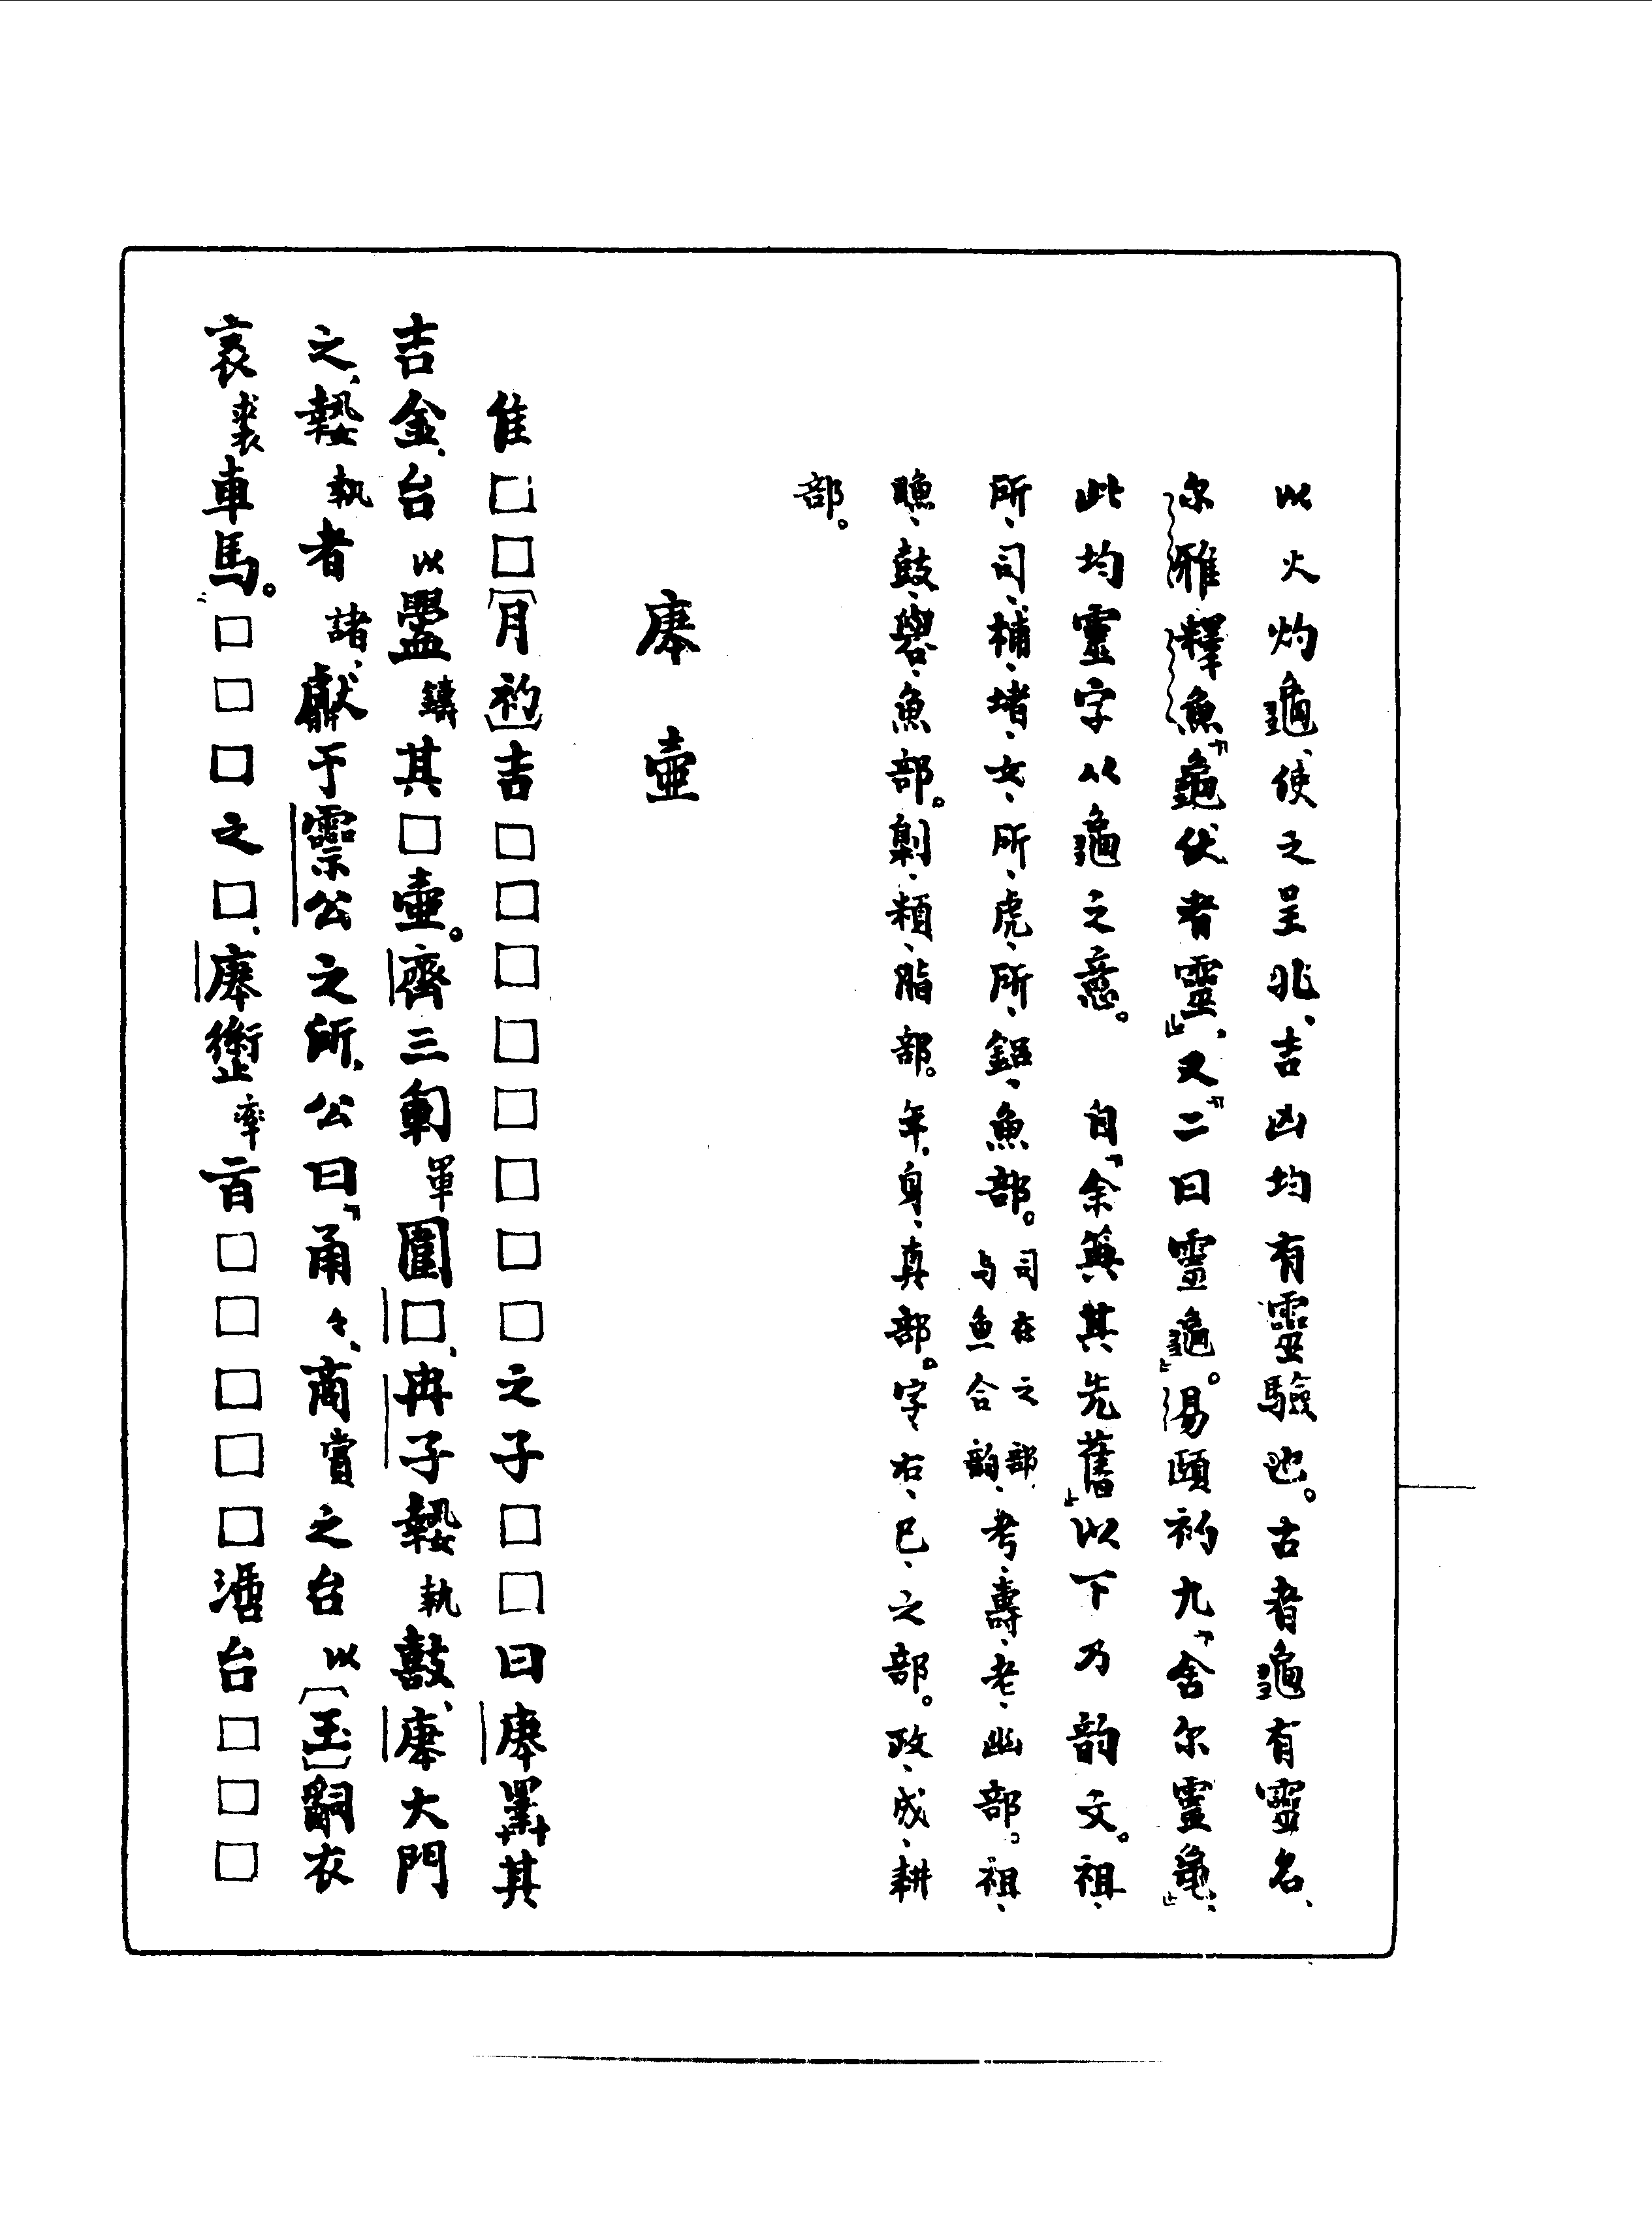 以火灼龜、使之呈兆、吉凶均有靈驗也。古者龜有靈名、
尔雅釋魚「龜伏者靈」、又「二曰靈龜」。易頤初九「舍尔靈龜」、
此均靈字从龜之意。　自「余其先舊」以下乃韵文。祖、
所、司、補、堵、女、所、虎、所、鋁、魚部。司在之部与魚合韵、考、壽、老、幽部。祖、
鼓、魚部。類、脂部。年、身、真部。字、右、巳、之部。政、成、耕
部。
庚壺
隹□□〔月初〕吉□□□□□□□□之子□□曰庚擇其
吉金、台以鑄其□壺。齊三軍圍□、冉子執鼓、庚大門
之、執者諸獻于靈公之所、公曰「甬々、商賞之台以〔玉〕嗣衣
裘車馬。」□□□之□、庚率百□□□□□台□□□